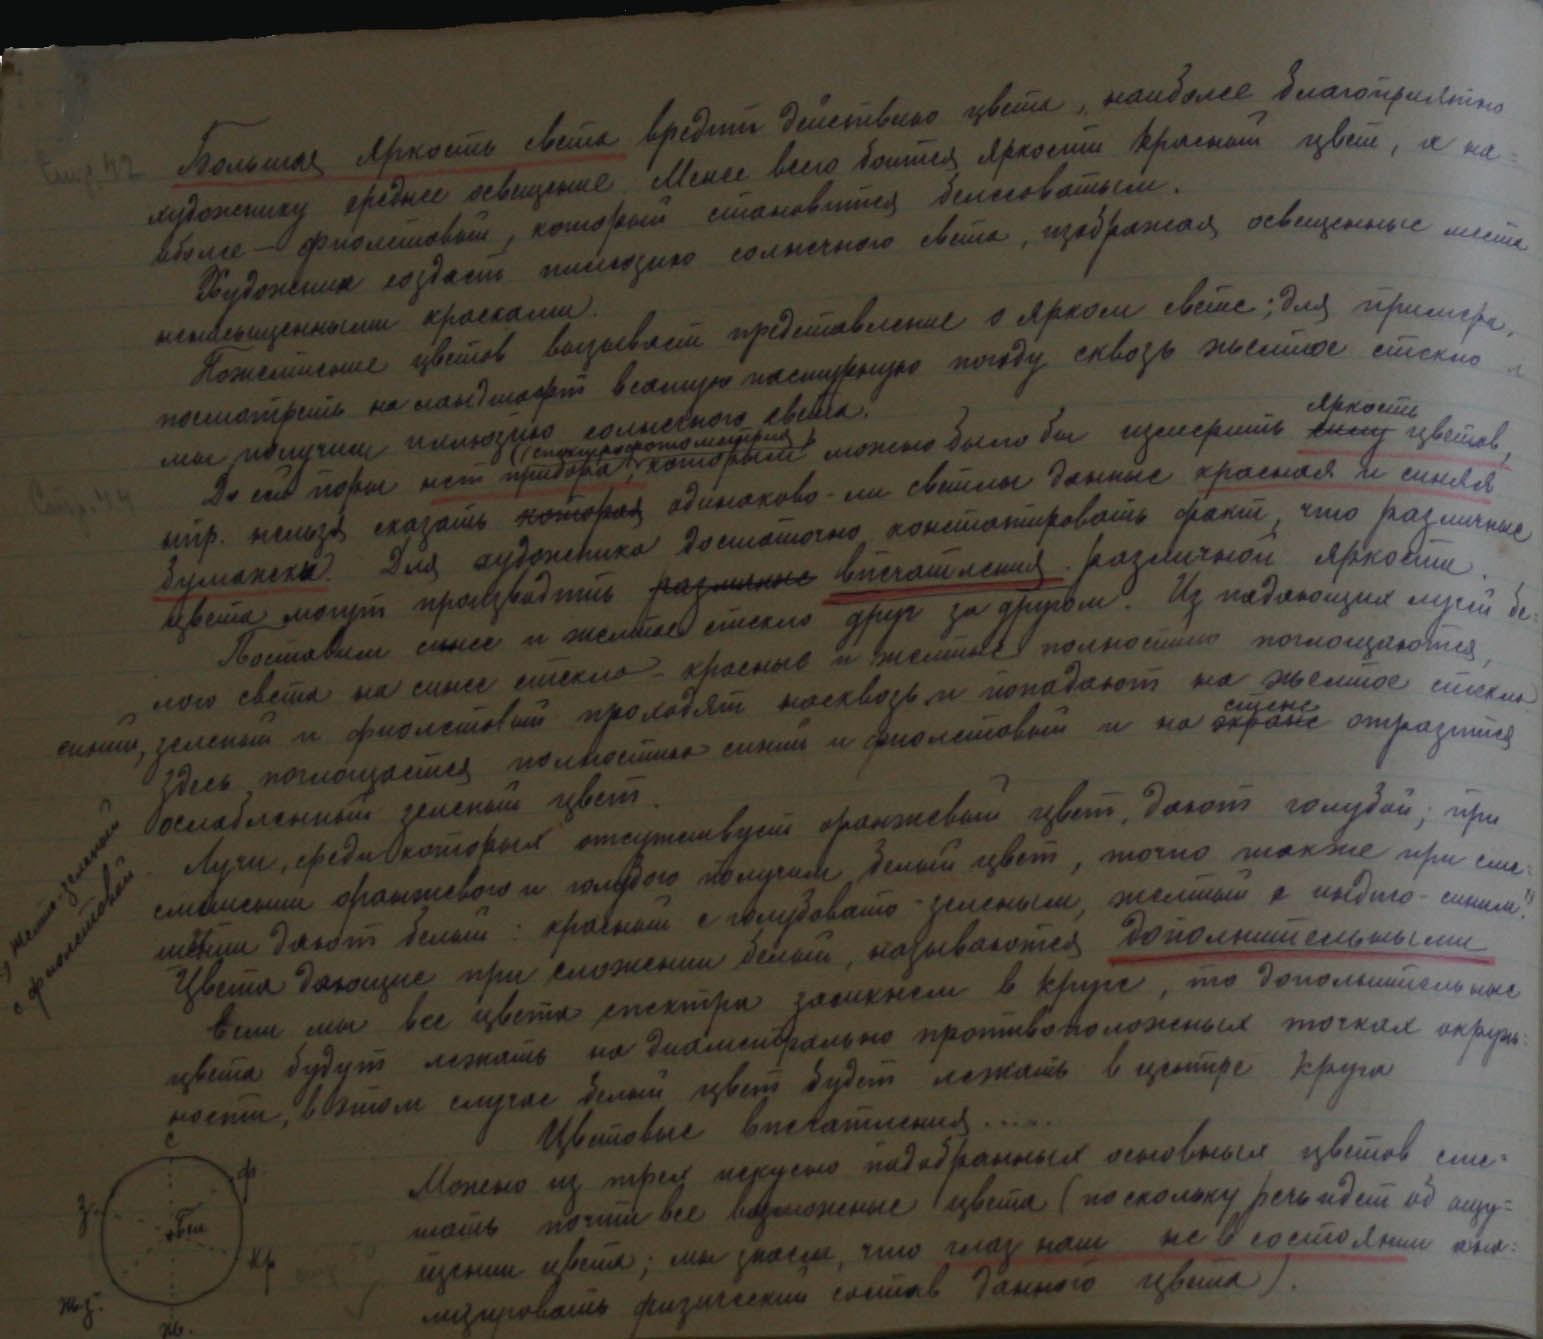 Стр. 42
Большая яркость света вредит действию цвета, наиболее благоприятно
художнику среднее освещение. Менее всего боится яркости красный цвет, а на-
иболее – фиолетовый, который становится белесоватым.
Художник создает иллюзию солнечного света, изображая освещенные места
ненасыщенными красками.
Пожелтение цветов вызывает представление о ярком свете; для примера,
посмотреть на ландшафт в самую пасмурную погоду сквозь желтое стекло и
мы получим иллюзию солнечного света.
(спектрофотометрия)
яркость
Стр. 44
До сей поры нет прибора, которым можно было бы измерить силу цветов,
нпр. нельзя сказать которая одинаково-ли светлы данные красная и синяя
бумажки. Для художника достаточно констатировать факт, что различные
цвета могут производить различные впечатления различной яркости.
Поставим синее и желтое стекло друг за другом. Из падающих лучей бе-
лого света на синее стекло – красные и желтые полностью поглощаются,
синий, зеленый и фиолетовый проходят насквозь и попадают на желтое стекло
стене
Здесь поглощается полностью синий и фиолетовый и на экране отразится
ослабленный зеленый цвет.
Лучи, среди которых отсутствует оранжевый цвет, дают голубой; при
смешении оранжевого и голубого получим белый цвет, точно также при сме-
шении дают белый: красный с голубовато-зеленым, желтый с индиго-синим.
1) желто-зеленый
с фиолетовым
Цвета дающие при сложении белый, называются дополнительными
Если мы все цвета спектра замкнем в круг, то дополнительные
цвета будут лежать на диаметрально противоположных точках окруж-
ности, в этом случае белый цвет будет лежать в центре круга
Цветовые впечатления.....
Можно из трех искусно подобранных основных цветов сме-
шать почти все возможные цвета (поскольку речь идет об ощу-
щении цвета; мы знаем, что глаз наш не в состоянии ана-
лизировать физический состав данного цвета).
с
ф
з.
бел
кр
ж.з.
ж.